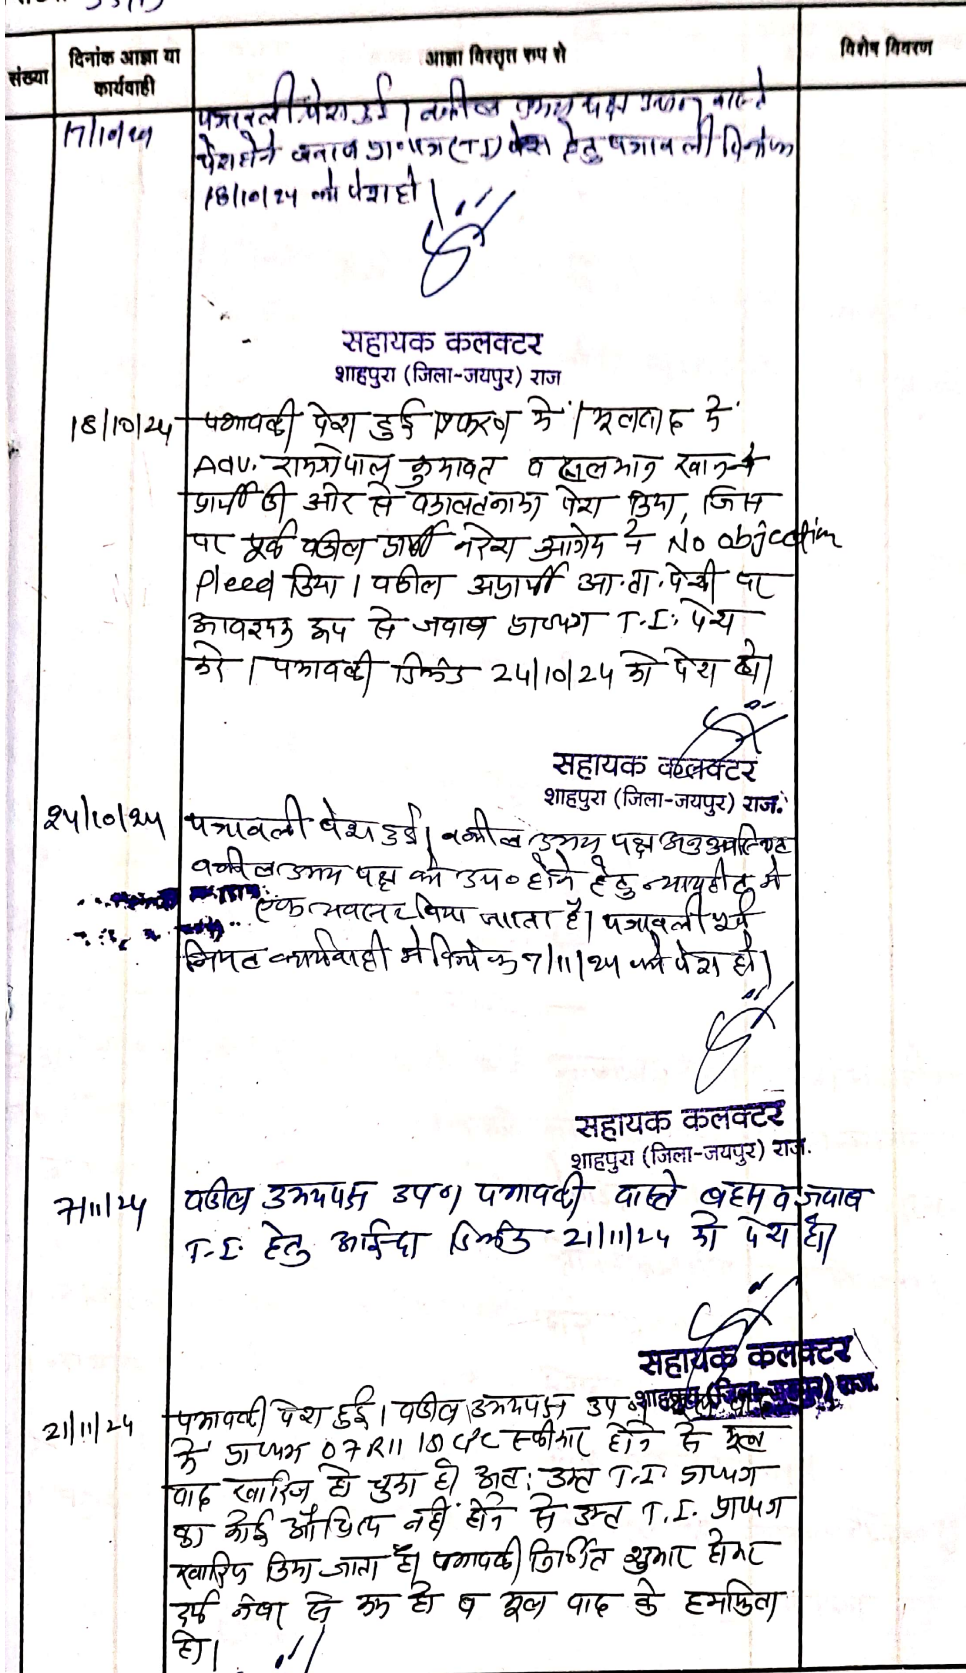 संख्या
दिनांक आज्ञा या
कार्यवाही
आज्ञा विस्तृत रूप से
विशेष विवरण
17/10/24
पत्रावली पेश हुई। वकील उभय पक्ष
पेश होने जवाब प्रा०पत्र (T.I) पेश हेतु पत्रावली दिनांक
18/10/24 को पेश हो।
सहायक कलक्टर
शाहपुरा (जिला-जयपुर) राज
18/10/24
पत्रावली पेश हुई प्रकरण में। मूलवाद में
Adv. रामगोपाल कुमावत व खान ने
प्रार्थी की ओर से वकालतनामा पेश किया, जिस
पर पूर्व वकील प्रार्थी नरेश ने No objection
Pleed किया। वकील अप्रार्थी आ.ता.पेशी पर
आवश्यक रूप से जवाब प्रा०पत्र T.I. पेश
करे। पत्रावली दिनांक 24/10/24 को पेश हो।
सहायक कलक्टर
शाहपुरा (जिला-जयपुर) राज.
24/10/24
पत्रावली पेश हुई। वकील उभय पक्ष अनुपस्थित
वकील उभय पक्ष को उप० होने हेतु न्यायहित में
एक अवसर दिया जाता है। पत्रावली पूर्व
नियत कार्यवाही में दिनांक 7/11/24 को पेश हो।
सहायक कलक्टर
शाहपुरा (जिला-जयपुर) राज.
7/11/24
वकील उभयपक्ष उप० पत्रावली वास्ते बहस व जवाब
T.I. हेतु आईन्दा दिनांक 21/11/24 को पेश हो।
सहायक कलक्टर
शाहपुरा (जिला-जयपुर) राज.
21/11/24
पत्रावली पेश हुई। वकील उभयपक्ष उप०
में प्रा०पत्र 07 R11 CPC स्वीकार होने से मूल
वाद खारिज हो चुका है। अतः उक्त T.I. प्रा०पत्र
का कोई औचित्य नहीं होने से उक्त T.I. प्रा०पत्र
खारिज किया जाता है। पत्रावली निर्णित शुमार होकर
दर्ज नंबर से कम हो व मूल वाद के हमफिता
हो।